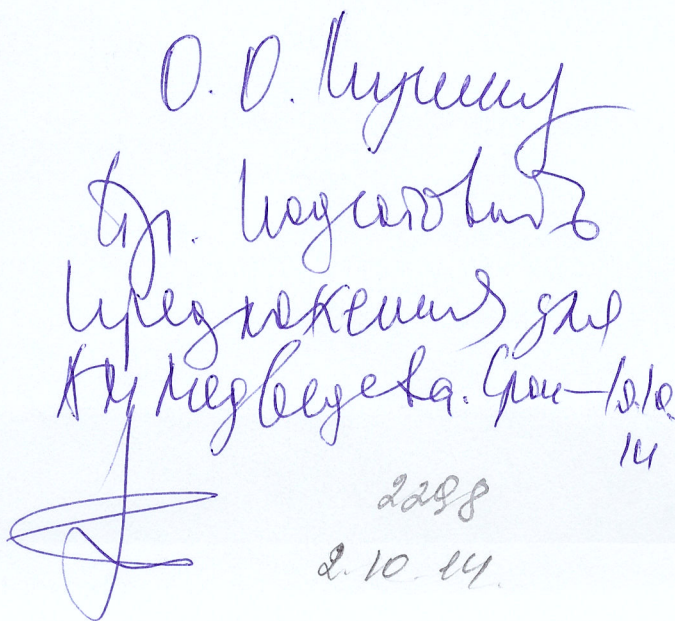 О. О.
Пр. подготовить
предложения для
Медведева. Срок – 10.10.
14
2298
2.10.14.